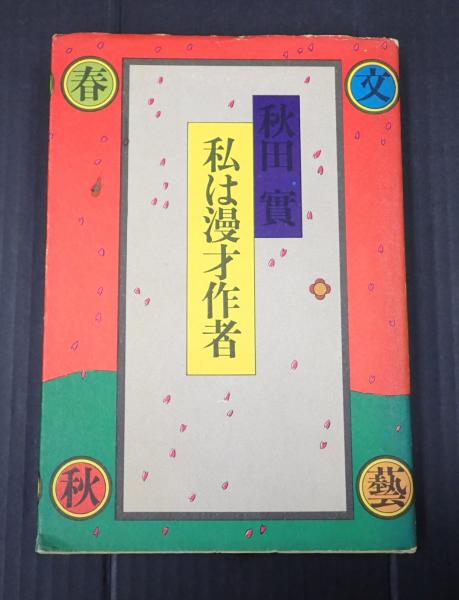 秋田實
私は漫才作者
文
藝
春
秋